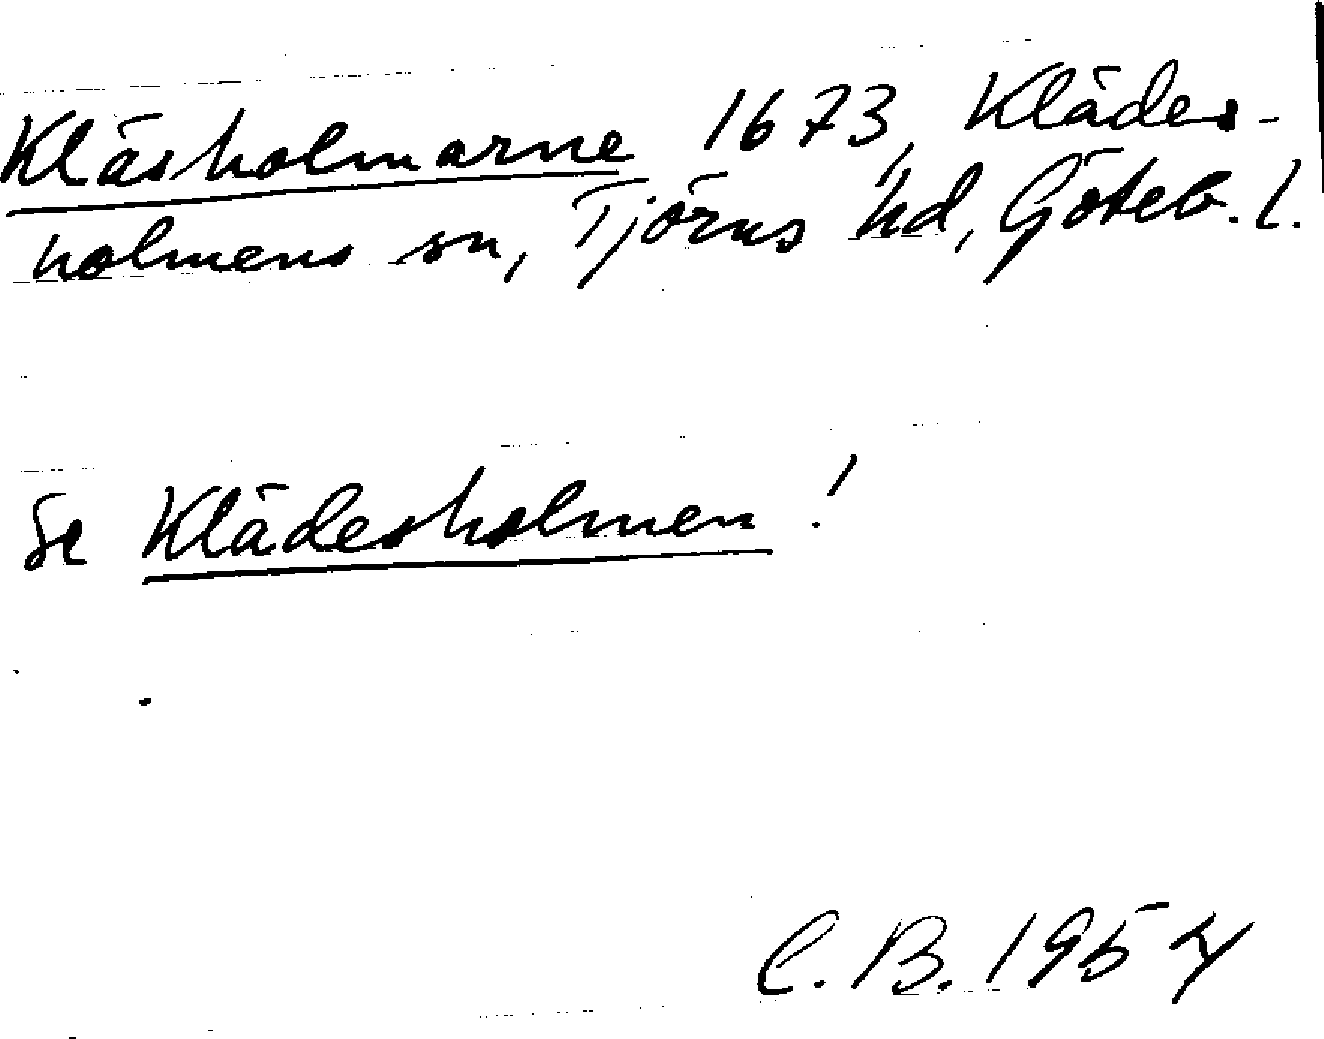 Kläsholmarne 1673, Klädes-
holmens sn, Tjörns hd, Göteb. l.
Se Klädesholmen!
C.B. 1954